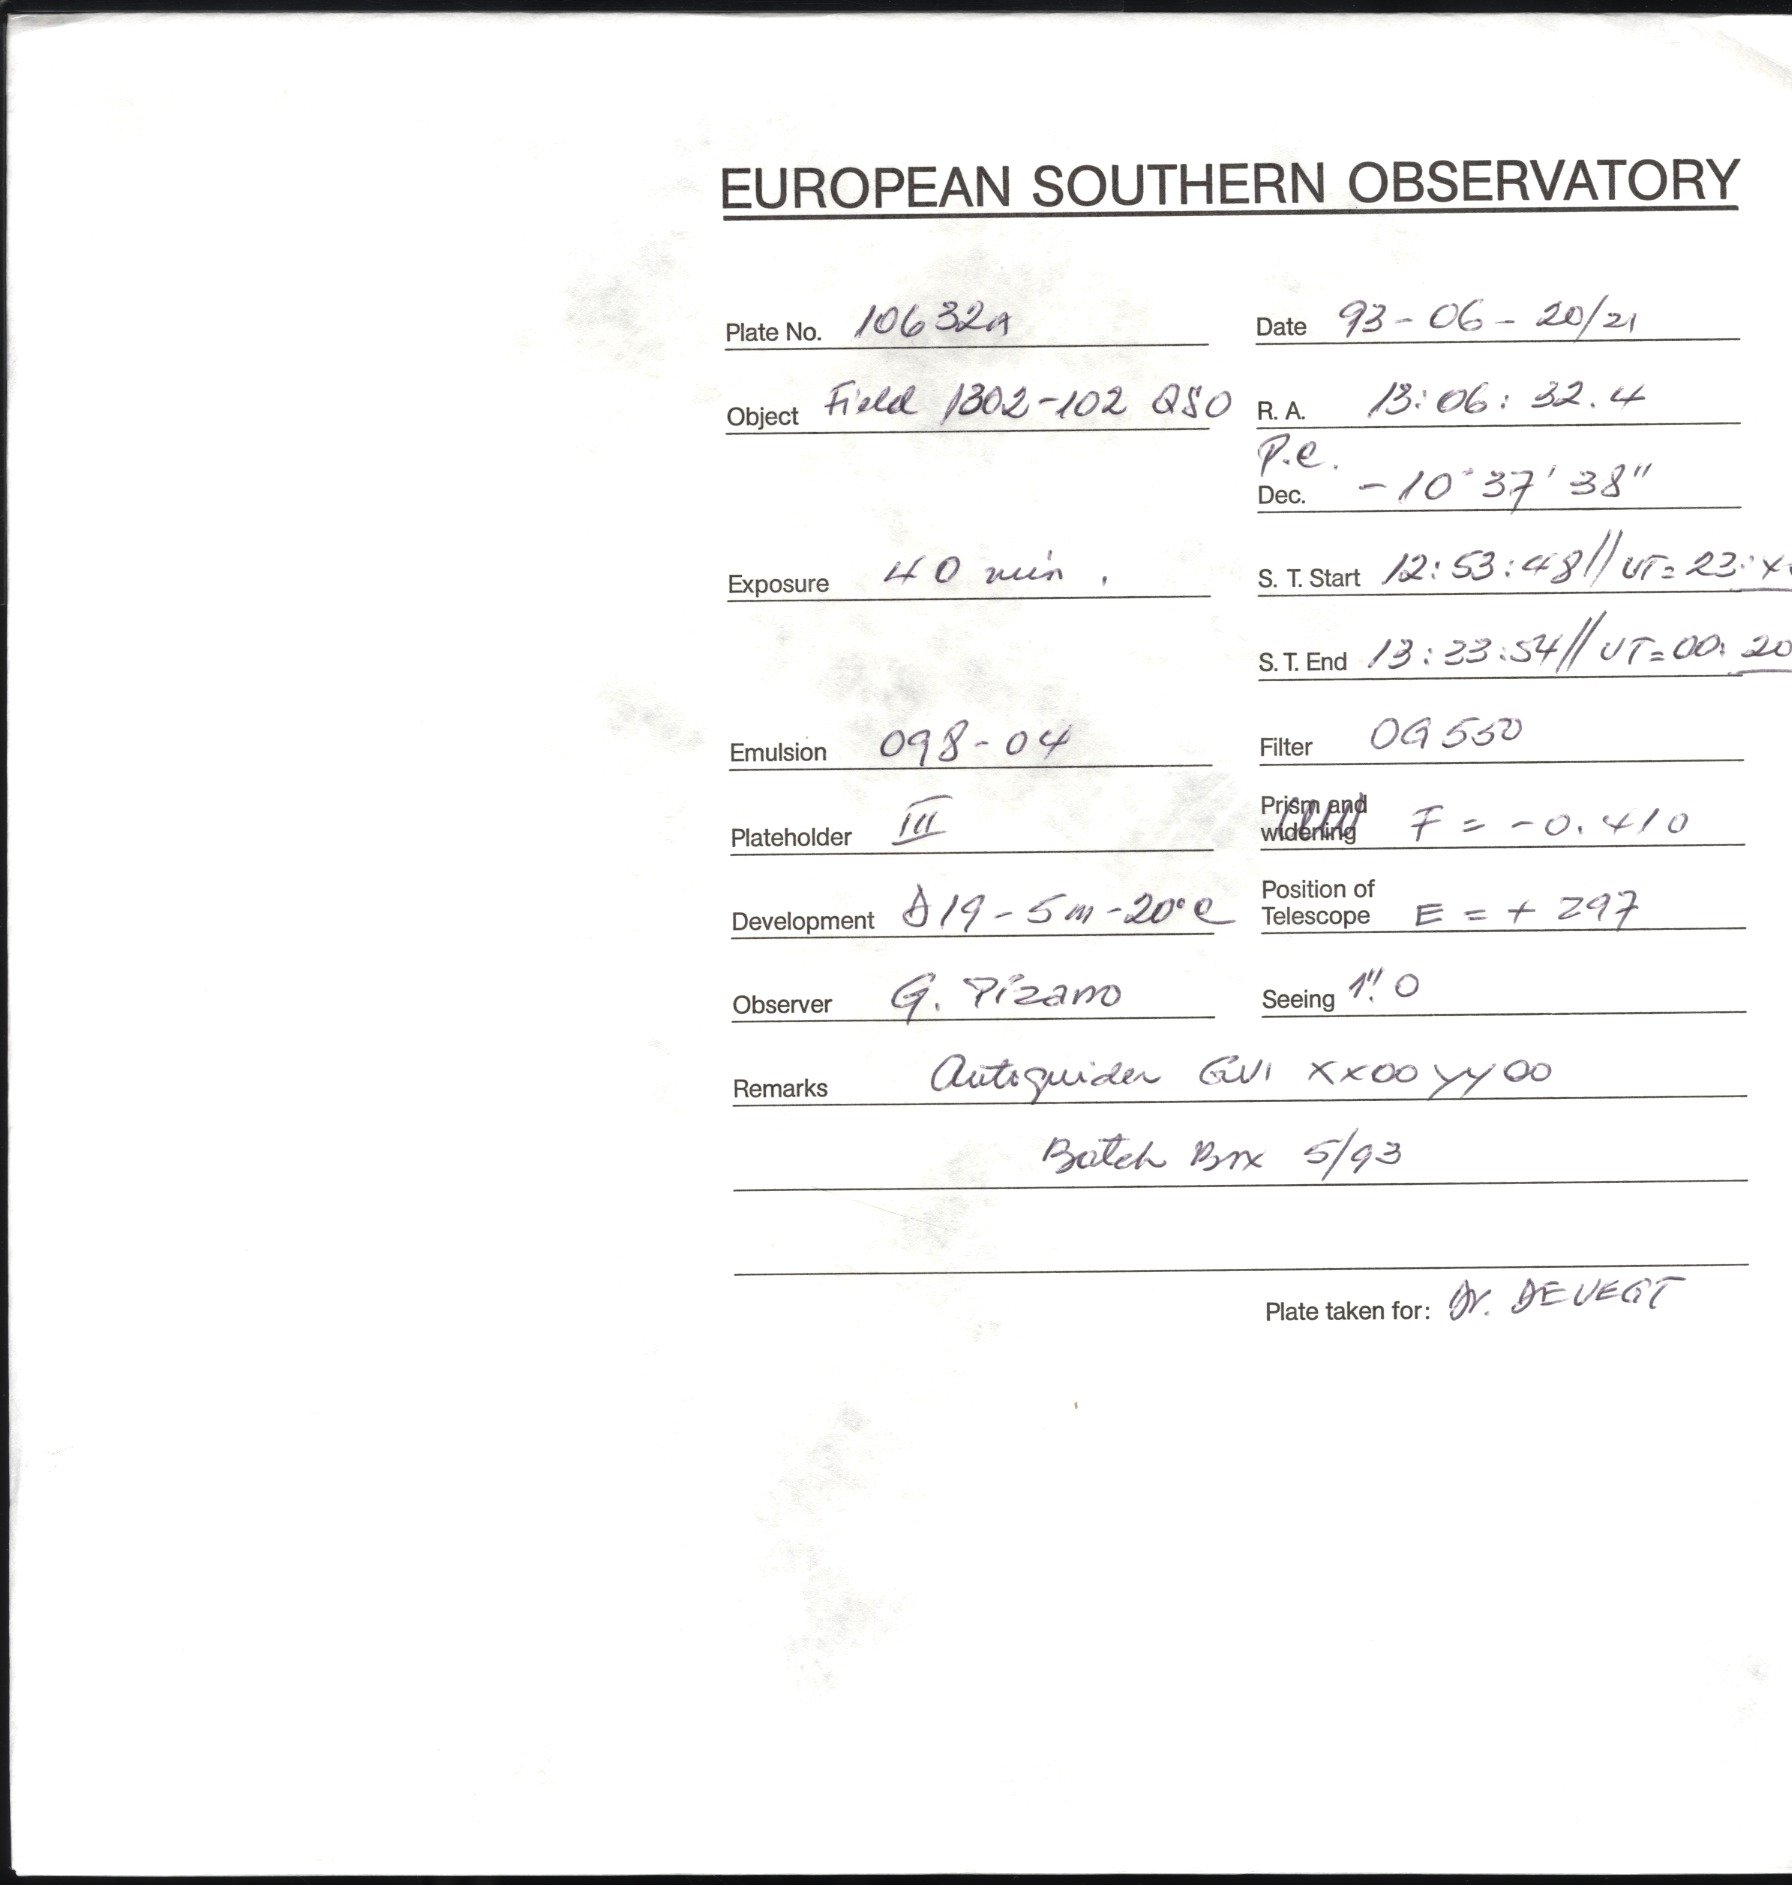 EUROPEAN SOUTHERN OBSERVATORY
Plate No. 10632A Date 93-06-20/21
Object Field 1302-102 QSO R. A. 13:06:32.4
P.C.
Dec. -10°37'38"
Exposure 40 min. S. T. Start 12:53:48// UT=23:
S. T. End 13:33:54// UT=00:20
Emulsion 098-04 Filter OG550
Plateholder III Prism and widening F = -0.410
Development D19-5m-20°C Position of Telescope E = + 297
Observer G. Pizarro Seeing 1".0
Remarks Autoguider GV1 XX00 YY00
Batch Box 5/93
Plate taken for: Dr. DEVEGT